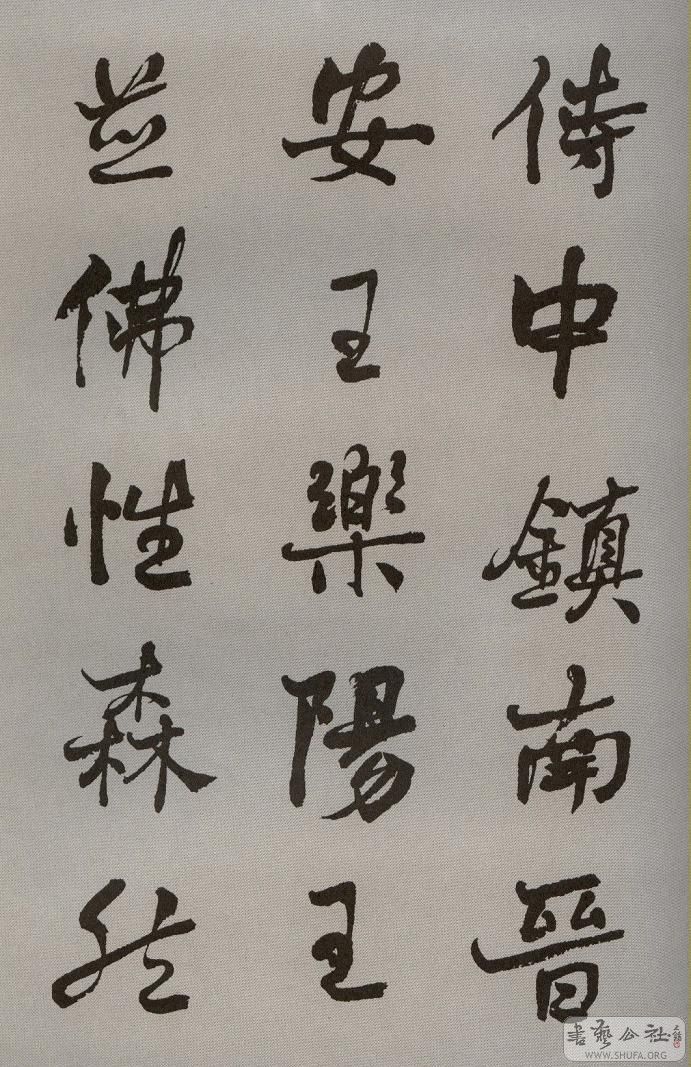 侍中鎮南晉
安王樂陽王
並佛性森然
書藝公社
WWW.SHUFA.ORG